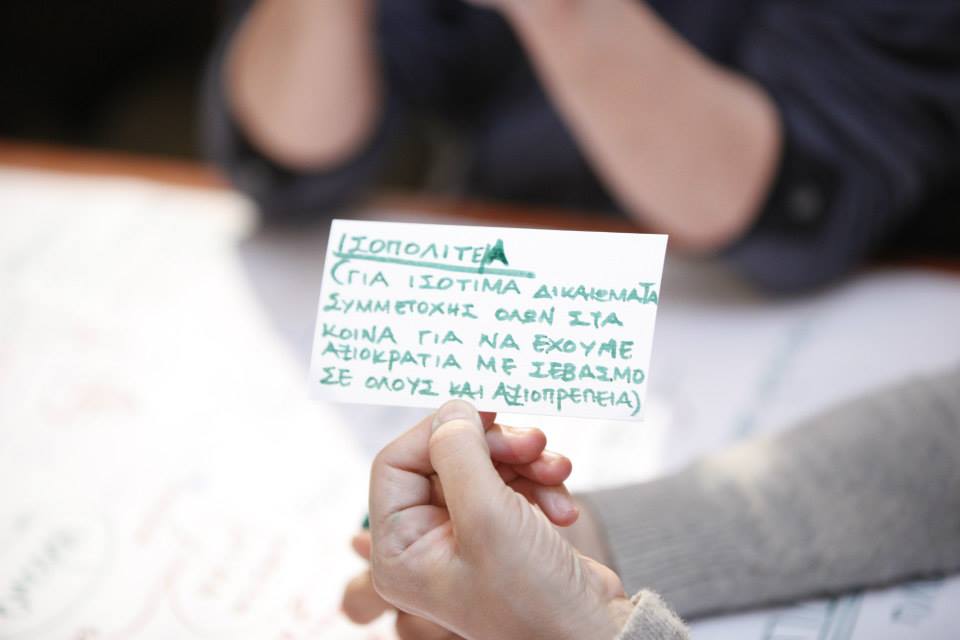 ΙΣΟΠΟΛΙΤΕΙΑ
(ΓΙΑ ΙΣΟΤΙΜΑ ΔΙΚΑΙΩΜΑΤΑ
ΣΥΜΜΕΤΟΧΗΣ ΟΛΩΝ ΣΤΑ
ΚΟΙΝΑ ΓΙΑ ΝΑ ΕΧΟΥΜΕ
ΑΞΙΟΚΡΑΤΙΑ ΜΕ ΣΕΒΑΣΜΟ
ΣΕ ΟΛΟΥΣ ΚΑΙ ΑΞΙΟΠΡΕΠΕΙΑ)